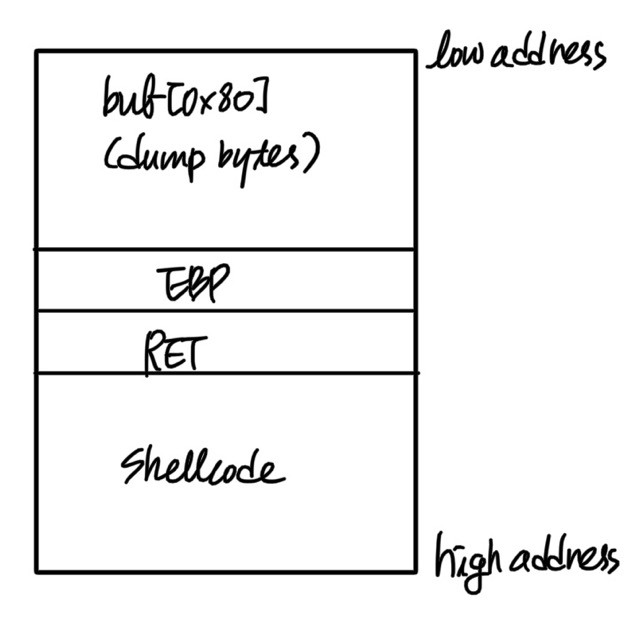 low address
buf[0x80]
(dump bytes)
EBP
RET
Shellcode
high address